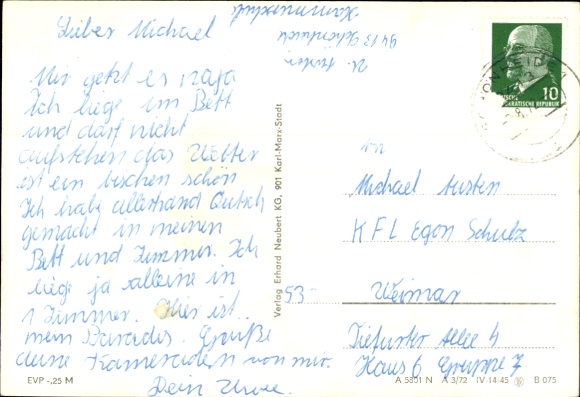 Lieber Michael
Mir getzt es naja
Ich liege im Bett
und darf nicht
aufstehen das Wetter
ist ein bischen schön
Ich habe allerhand Qutsch
gemacht in meinen
Bett und Zimmer. Ich
liege ja alleine in
1 Zimmer. Hier ist
mein Paradis. Grüße
deine Kameraden von mir.
Dein Uwe.
9413 Schönheide
An
Michael Austen
KFL Egon Schulz
53 Weimar
Tiefurter Allee 4
Haus 6 Gruppe 7
Verlag Erhard Neubert KG, 901 Karl-Marx-Stadt
10
DEUTSCHE
DEMOKRATISCHE REPUBLIK
EVP -,25 M
A 5301 N A 3/72 IV-14-45 B 075